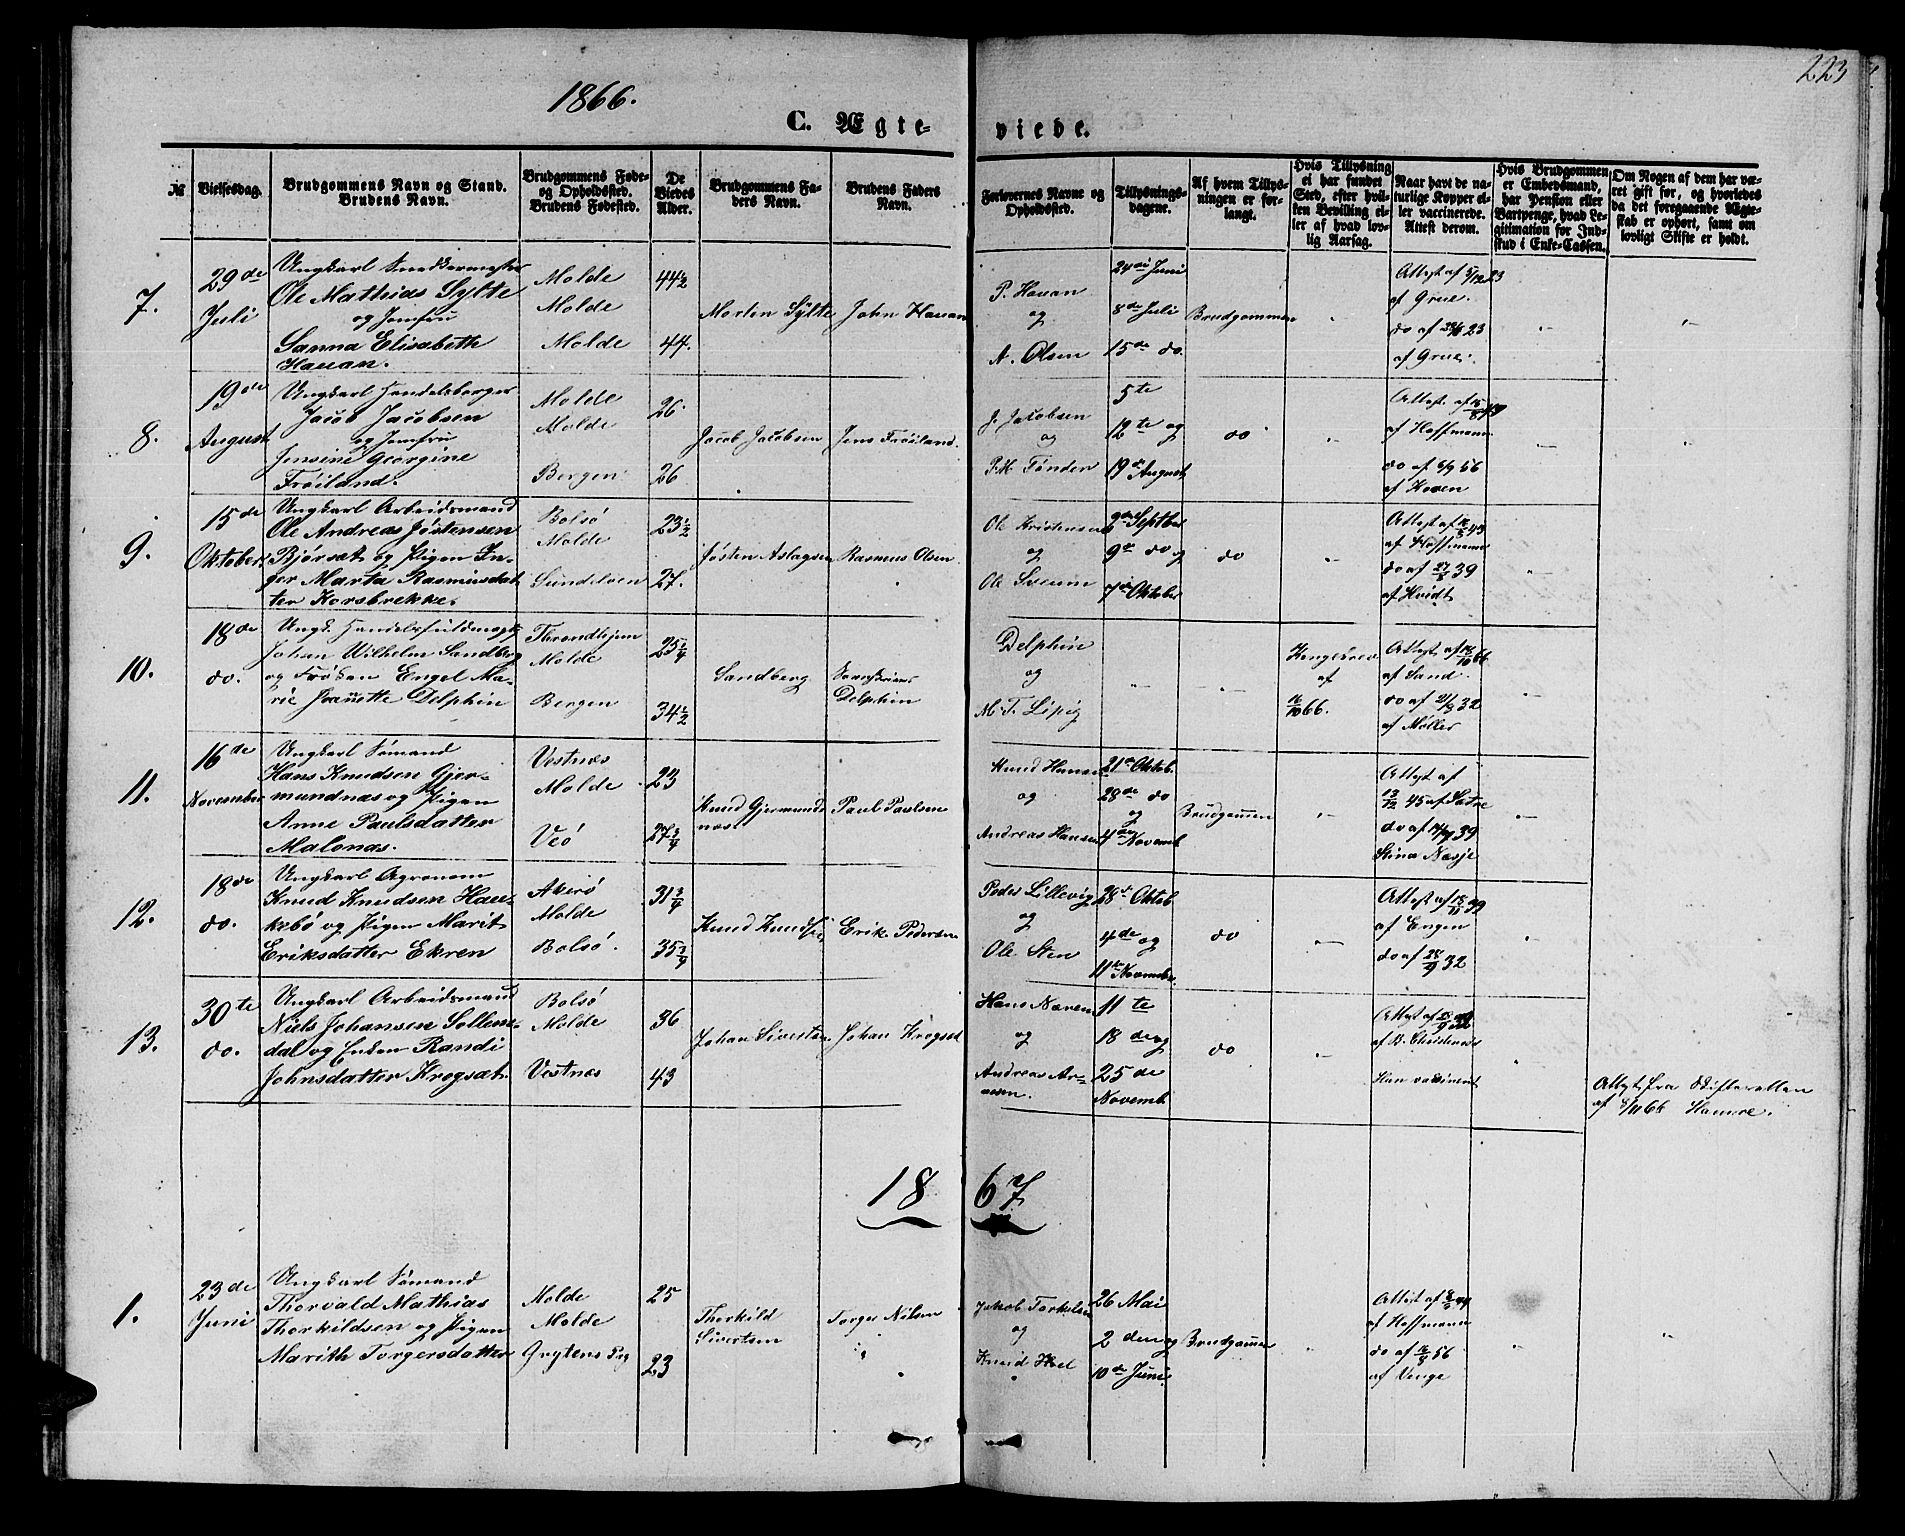 1866.
223
C. Ægte-
viede.
№
Vielsesdag.
Brudgommens Navn og Stand.
Brudens Navn.
Brudgommens Føde-
og Opholdssted.
Brudens Fødested.
De
Viedes
Alder.
Brudgommens Fa-
ders Navn.
Brudens Faders
Navn.
Forlovernes Navne og
Opholdssted.
Tillysnings-
dagene.
Af hvem Tillys-
ningen er for-
langt.
Hvis Tillysning
ei har fundet
Sted, efter hvil-
ken Bevilling el-
ler af hvad lov-
lig Aarsag.
Naar havt de na-
turlige Kopper el-
ler vaccinerede.
Attest derom.
Hvis Brudgommen
er Embedsmand,
har Pension eller
Vartpenge, hvad Le-
gitimation for Ind-
skud i Enke-Cassen.
Om Nogen af dem har væ-
ret gift før, og hvorledes
da det foregaaende Ægte-
skab er ophørt, samt om
lovligt Skifte er holdt.
7.
29de
Juli
Ungkarl Snedkermester
Ole Mathias Sylte
og Jomfru
Sanna Elisabeth
Hauan.
Molde
Molde
Molde
44½
44.
Morten Sylte
John Hauan
P. Hauan
og
A. Olsen
24de Juni
8de Juli
15de do.
Brudgommen
Attest af 5/12 23
af Grue.
do af 23
af Grue.
8.
19de
August
Ungkarl Handelsborger
Jacob Jacobsen
og Jomfru
Jensine Georgine
Frøiland.
Molde
Molde
Bergen
26.
26
Jacob Jacobsen
Jens Frøiland.
J. Jakobsen
og
P. M. Tønder
5te
12te og
19de August
do
Attest. af
af Hoffmann
do af 6/9 56
af Hoven
9.
15de
Oktober.
Ungkarl Arbeidsmand
Ole Andreas Jøstensen
Bjørsæt og Pigen In-
ger Marta Rasmusdat-
ter Korsbrekke.
Bolsø
Molde
Sundeløen
23½
27.
Jøsten Aslagsen
Rasmus Olsen
Ole Kristensen
og
Ole Sveum
Septber
9de do og
7de Oktober
do
Attest af
af Hoffmann
do af 27/8 39
af Hvidt
10.
18de
do.
Ungk. Handelsfuldmægt.
Johan Wilhelm Sandberg
og Frøken Engel Ma-
rie Jeanette Delphin
Throndhjem
Molde
Bergen
25¼
34½
Sandberg
Sorenskriver
Delphin
Delphin
og
M. T. Lipig
Kongebrev
af
16/10 66.
Attest af 18/10 66
af Sand.
do af 21/9 32
af Møller
11.
16de
November
Ungkarl Sømand
Hans Knudsen Gjer-
mundnæs og Pigen
Anne Paulsdatter
Malonæs.
Vestnæs
Molde
Veø
23
27¾
Knud Gjermund-
næs
Paul Paulsen
Knud Hansen
og
Andreas Hansen
21de Oktob.
28de do
og
4de Novemb.
Brudgommen
Attest af
13/12 45 af Sætre
do af 39
Stina Næsje
12.
18de
do.
Ungkarl Agronom
Knud Knudsen Hau-
kebø og Pigen Marit
Eriksdatter Ekren
Akerø
Molde
Bolsø.
31¾
35¾
Knud Knudsen
Erik Pedersen
Peder Lillevig
og
Ole Sten
28de Oktob.
4de og
11te November
do
Attest af 39
af Engen
do af 28/9 32
13.
30te
do.
Ungkarl Arbeidsmand
Niels Johansen Solems-
dal og Enken Randi
Johnsdatter Krogsæt.
Bolsø
Molde
Vestnæs
36
43
Johan Sivertsen
Johan Krogsæt
Hans Næren
og
Andreas Ar-
nesen.
11te
18de og
25de
Novemb.
do
Attest af
af B. Christensen
Hun vaccineret
Attest fra Skifteretten
af 8/11 66 Hamre.
18 67
1.
23de
Juni
Ungkarl Sømand
Thorvald Mathias
Thorkildsen og Pigen
Marith Torgersdatter
Molde
Molde
Grytens Prg
25
23
Thorkild
Sivertsen
Torger Nilsen
Jakob Torkelsen
og
Knud Hoel
26 Mai
2den og
10de Juni.
Brudgommen
Attest af
af Hoffmann
do af 56
af Venge